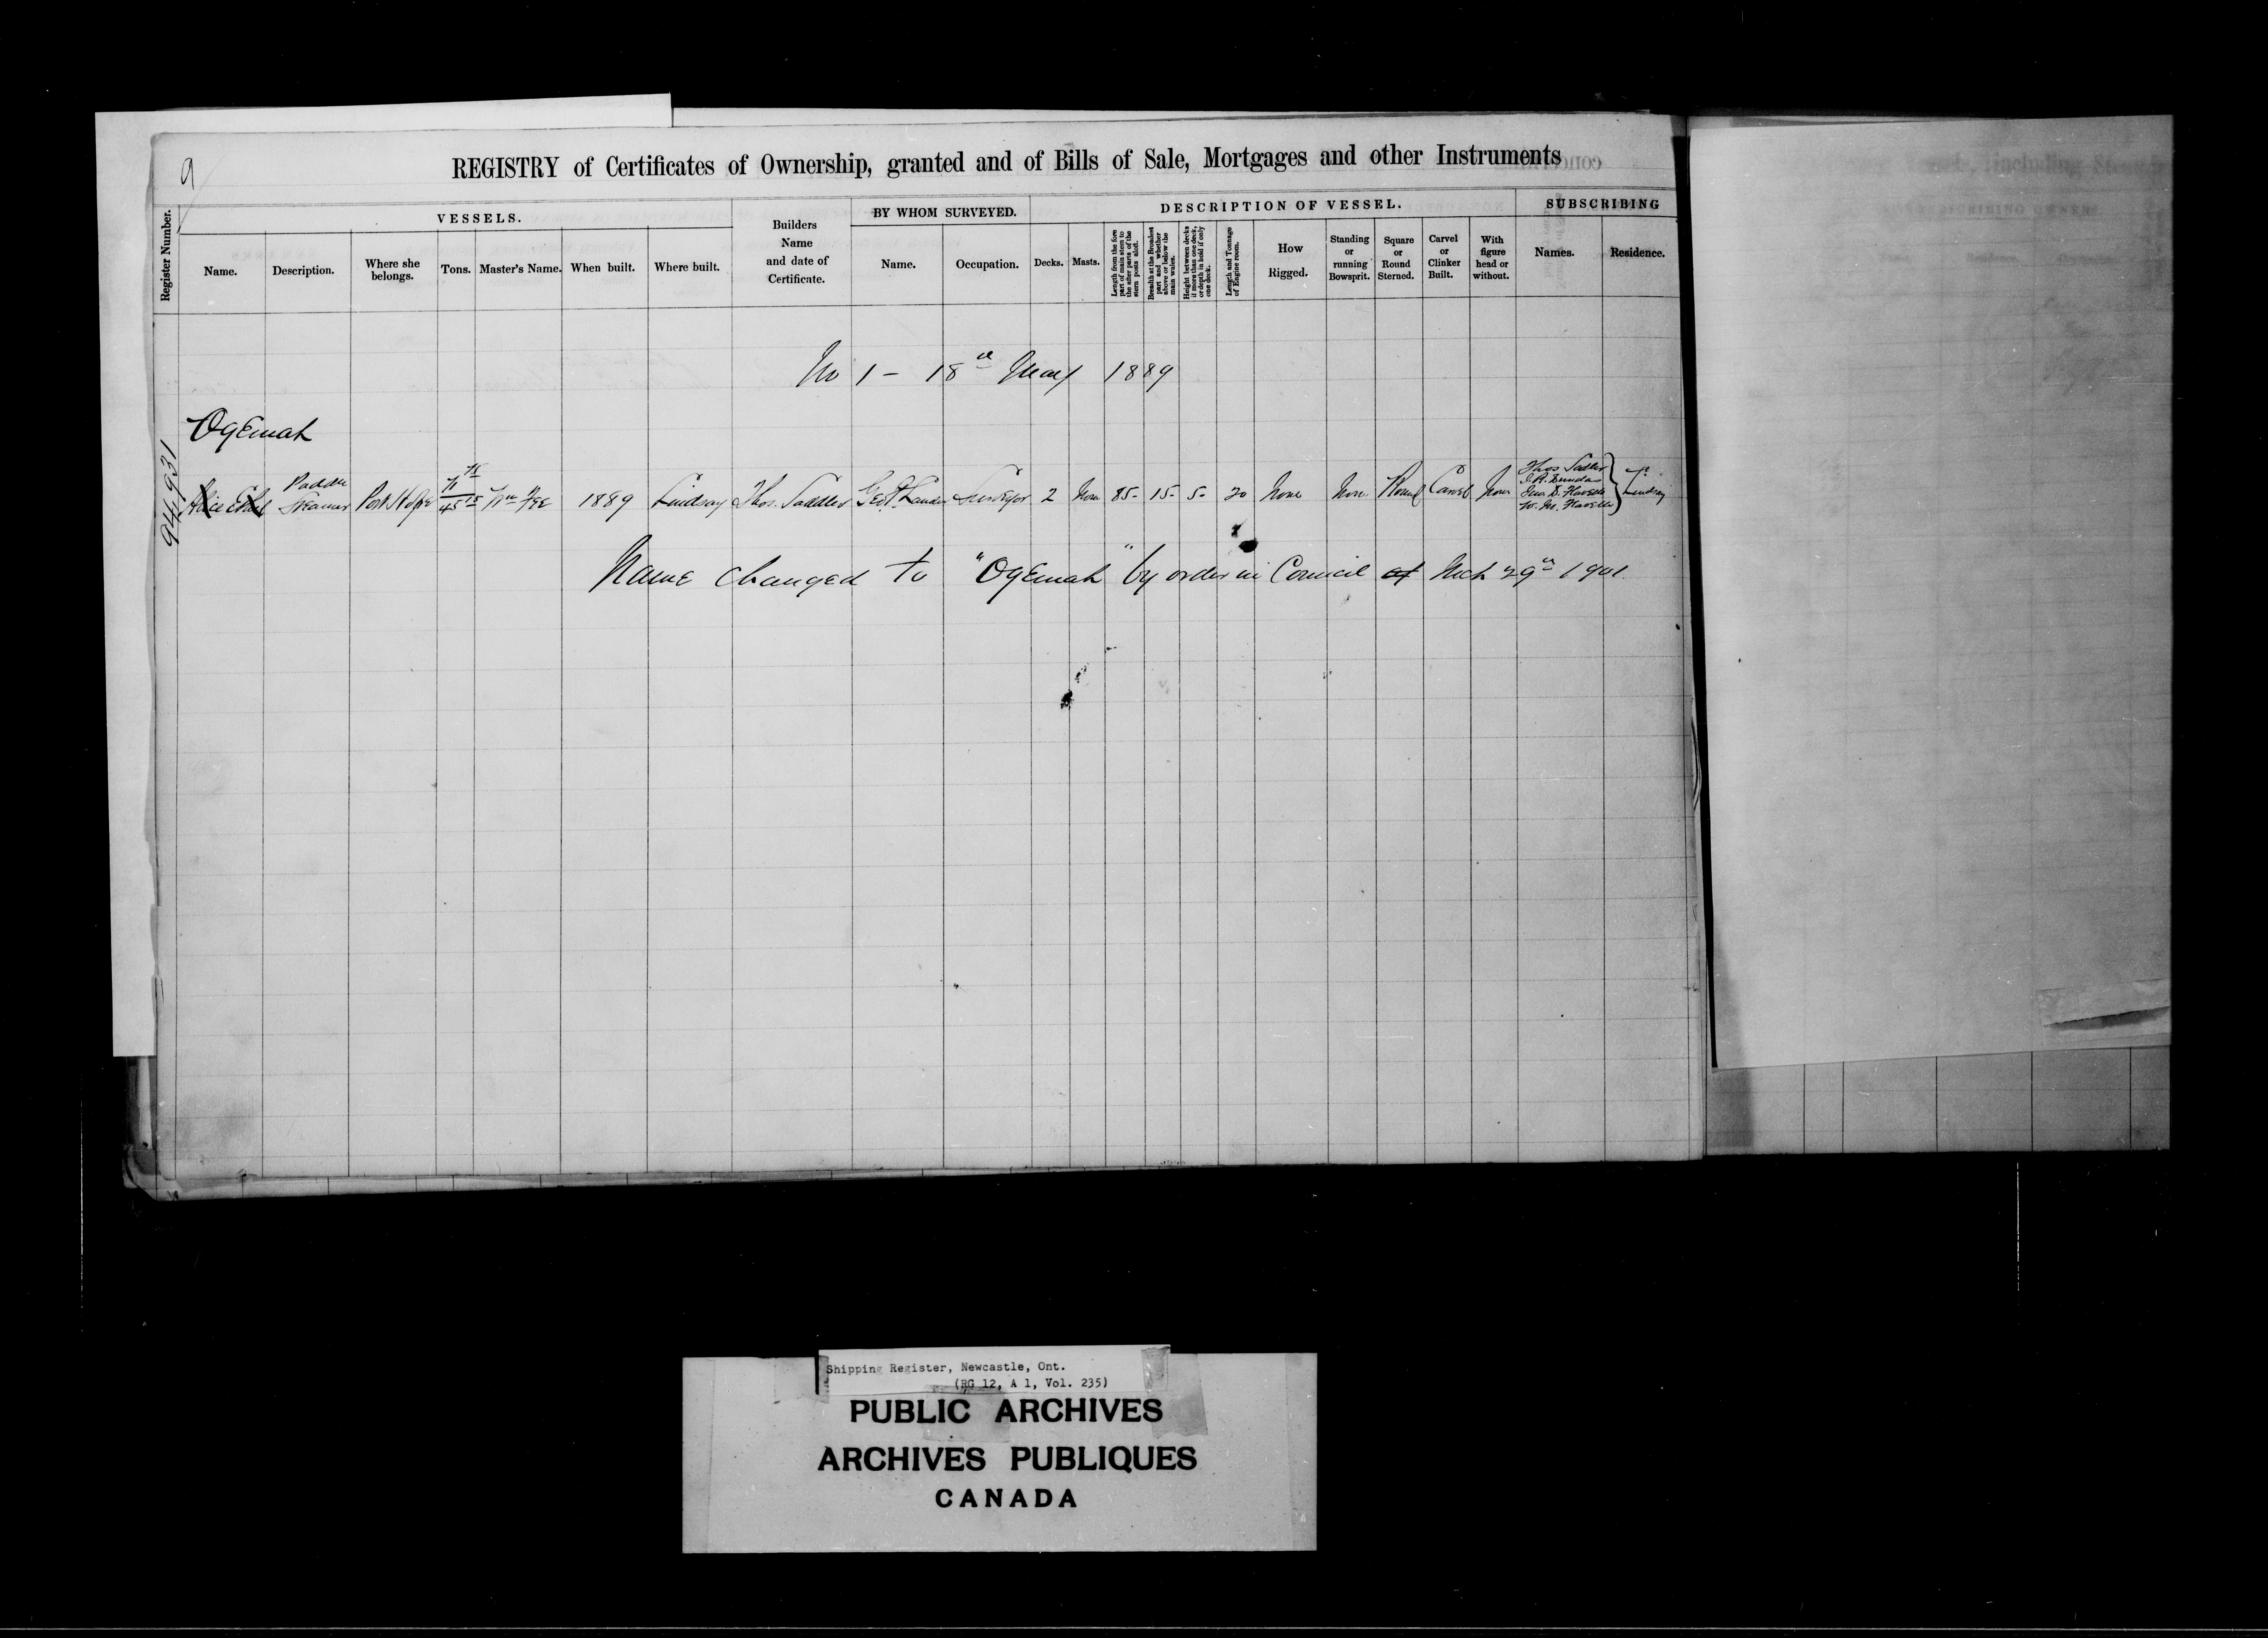 9
REGISTRY of Certificates of Ownership, granted and of Bills of Sale, Mortgages and other Instruments
Register Number.
VESSELS.
Name.
Description.
Where she belongs.
Tons.
Master's Name.
When built.
Where built.
Builders Name and date of Certificate.
BY WHOM SURVEYED.
Name.
Occupation.
DESCRIPTION OF VESSEL.
Decks.
Masts.
Length from the fore part of main stem to the after parts of the stern posts aloft.
Breadth at the Broadest part and whether above or below the main wales.
Height between decks if more than one deck, or depth in hold if only one deck.
Length and Tonnage of Engine room.
How Rigged.
Standing or running Bowsprit.
Square or Round Sterned.
Carvel or Clinker Built.
With figure head or without.
SUBSCRIBING
Names.
Residence.
No 1 - 18th May 1889
Ogemah
94931
Alice Ethel
Paddle Steamer
Port Hope
45 15
1889
Lindsay
Thos. Saddler
Surveyor
2
None
85-
15-
5-
20
None
None
Round
Carvel
None
Thos Sadler
J. R. Dundas
Jno. D. Flavelle
W. M. Flavelle
Lindsay
Name changed to "Ogemah" by order in Council of Mch 29th 1901.
Shipping Register, Newcastle, Ont.
(RG 12, A 1, Vol. 235)
PUBLIC ARCHIVES
ARCHIVES PUBLIQUES
CANADA